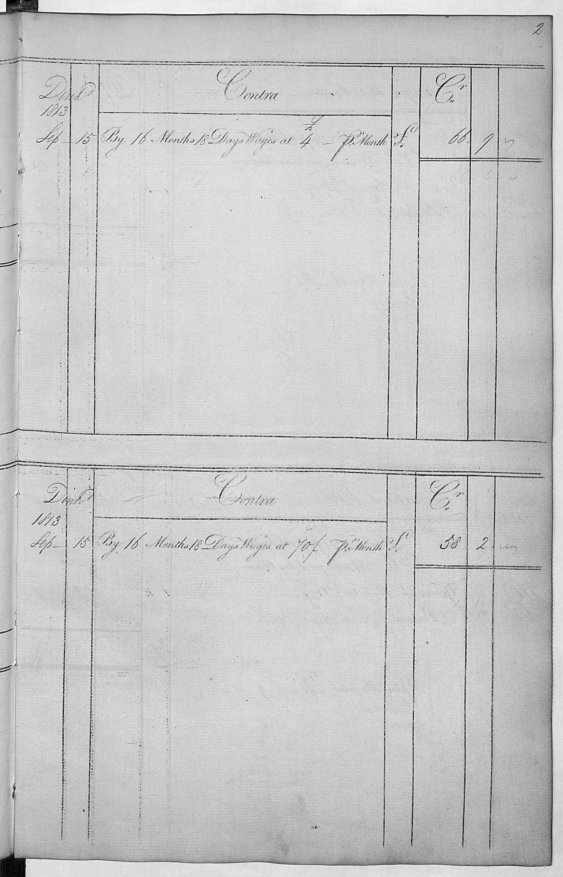 2
Contra
Cr.
1813
Sep 15 By 16 Months, 13 Days Wages at £ 4 – Pr Month £. 66. 9 "
Contra
Cr.
1813
Sep 15 By 16 Months 13 Days Wages at 70/. Pr Month £. 58 2 "